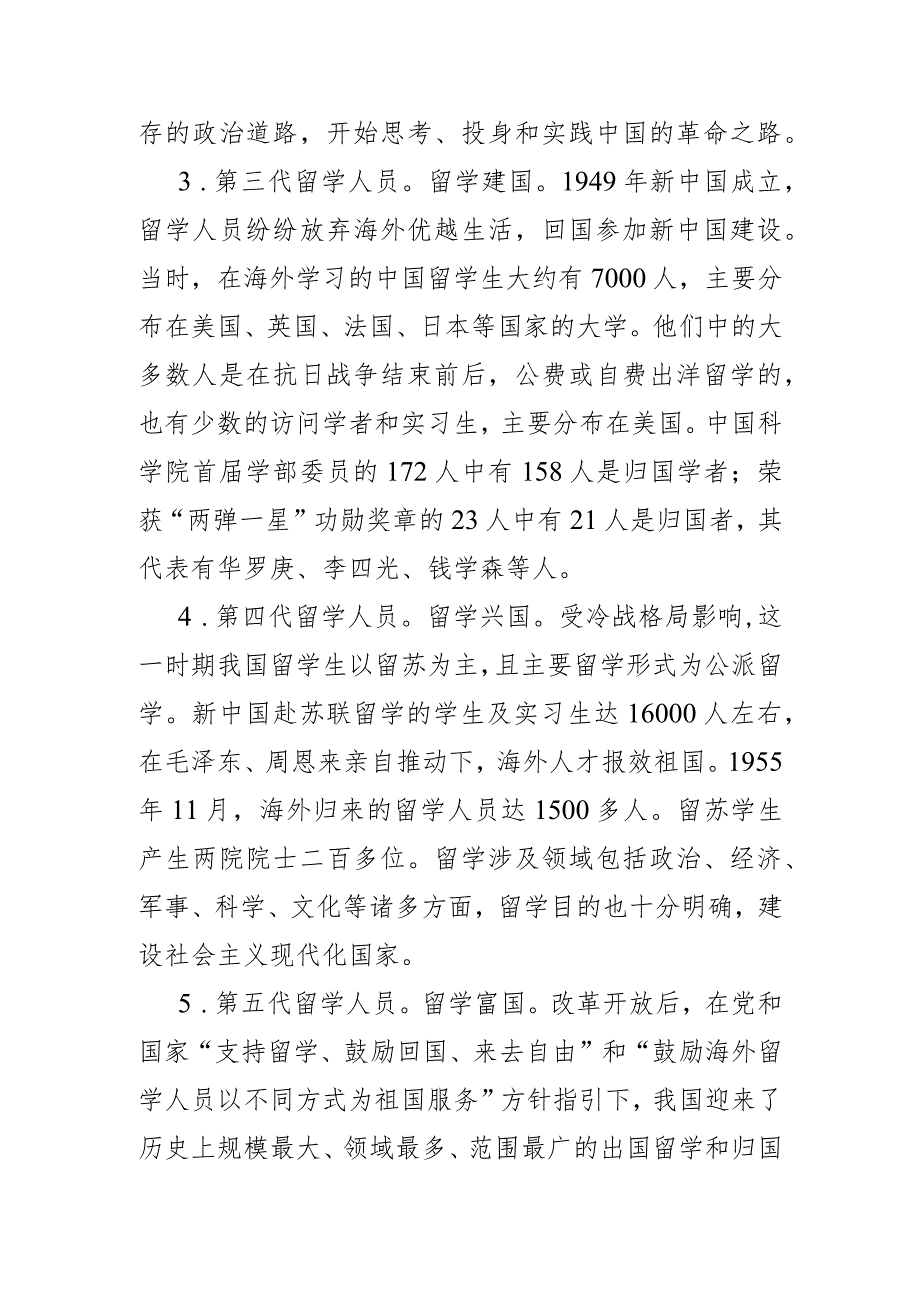 存的政治道路，开始思考、投身和实践中国的革命之路。
3．第三代留学人员。留学建国。1949 年新中国成立，
留学人员纷纷放弃海外优越生活，回国参加新中国建设。
当时，在海外学习的中国留学生大约有 7000 人，主要分
布在美国、英国、法国、日本等国家的大学。他们中的大
多数人是在抗日战争结束前后，公费或自费出洋留学的，
也有少数的访问学者和实习生，主要分布在美国。中国科
学院首届学部委员的 172 人中有 158 人是归国学者；荣
获“两弹一星”功勋奖章的 23 人中有 21 人是归国者，其
代表有华罗庚、李四光、钱学森等人。
4．第四代留学人员。留学兴国。受冷战格局影响,这
一时期我国留学生以留苏为主，且主要留学形式为公派留
学。新中国赴苏联留学的学生及实习生达 16000 人左右，
在毛泽东、周恩来亲自推动下，海外人才报效祖国。1955
年 11 月，海外归来的留学人员达 1500 多人。留苏学生
产生两院院士二百多位。留学涉及领域包括政治、经济、
军事、科学、文化等诸多方面，留学目的也十分明确，建
设社会主义现代化国家。
5．第五代留学人员。留学富国。改革开放后，在党和
国家“支持留学、鼓励回国、来去自由”和“鼓励海外留
学人员以不同方式为祖国服务”方针指引下，我国迎来了
历史上规模最大、领域最多、范围最广的出国留学和归国